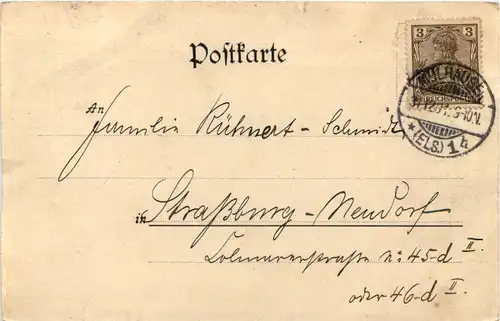 Postkarte
3 3
REICHSPOST
MÜLHAUSEN
9-10N.
* (ELS.) 14
An Familie Kühnert-Schmidt
in Straßburg-Neudorf
Colmarerstraße N: 45-d II.
oder 46-d II.